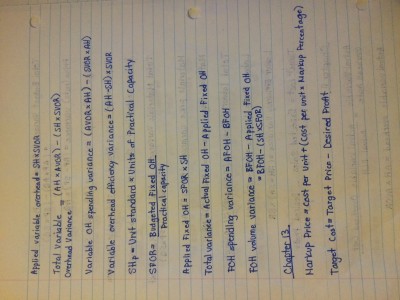 Applied variable overhead = SH x SVOR
Total Variable = (AH x AVOR) - (SH x SVOR)
Overhead variance
Variable OH spending variance = (AVOR x AH) - (SVOR x AH)
Variable overhead efficiency variance = (AH - SH) x SVOR
SHp = Unit standard x Units of Practical Capacity
SFOR = Budgeted Fixed OH
Practical capacity
Applied Fixed OH = SFOR x SH
Total variance = Actual Fixed OH - Applied Fixed OH
FOH spending variance = AFOH - BFOH
FOH volume variance = BFOH - Applied Fixed OH
= BFOH - (SH x SFOR)
Chapter 13
Markup Price = Cost per Unit + (Cost per unit x Markup Percentage)
Target Cost = Target Price - Desired Profit